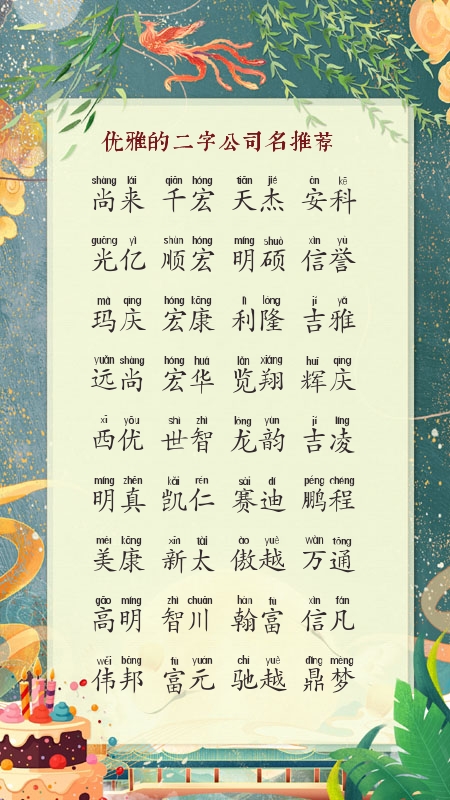 优雅的二字公司名推荐
shàng lái qiān hóng tiān jié ān kē
尚来 千宏 天杰 安科
guāng yì shùn hóng míng shuò xìn yù
光亿 顺宏 明硕 信誉
mǎ qìng hóng kāng lì lóng jí yǎ
玛庆 宏康 利隆 吉雅
yuǎn shàng hóng huá lǎn xiáng huī qìng
远尚 宏华 览翔 辉庆
xī yōu shì zhì lóng yùn jí líng
西优 世智 龙韵 吉凌
míng zhēn kǎi rén sài dí péng chéng
明真 凯仁 赛迪 鹏程
měi kāng xīn tài ào yuè wàn tōng
美康 新太 傲越 万通
gāo míng zhì chuān hàn fù xìn fán
高明 智川 翰富 信凡
wěi bāng fù yuán chí yuè dǐng mèng
伟邦 富元 驰越 鼎梦